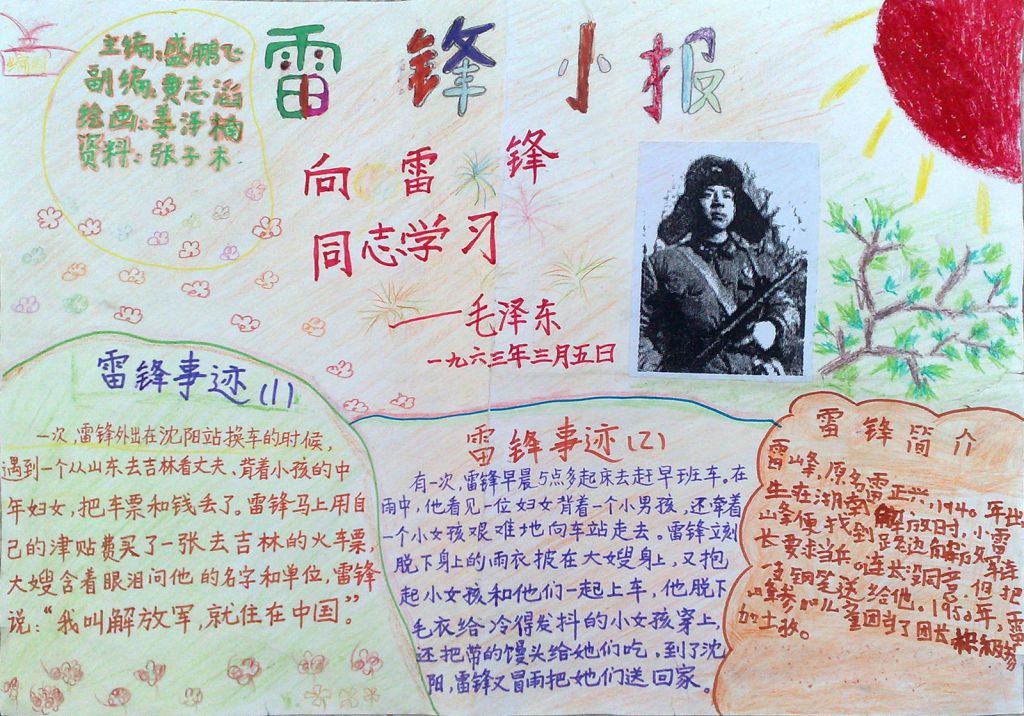 主编:盛鹏飞
副编:黄志滔
绘画:姜泽楠
资料:张子木
雷锋小报
向雷锋
同志学习
——毛泽东
一九六三年三月五日
雷锋事迹(1)
一次,雷锋外出在沈阳站换车的时候,
遇到一个从山东去吉林看丈夫、背着小孩的中
年妇女,把车票和钱丢了。雷锋马上用自
己的津贴费买了一张去吉林的火车票,
大嫂含着眼泪问他的名字和单位,雷锋
说:“我叫解放军,就住在中国”。
雷锋事迹(2)
有一次,雷锋早晨5点多起床去赶早班车。在
雨中,他看见一位妇女背着一个小男孩,还牵着
一个小女孩艰难地向车站走去。雷锋立刻
脱下身上的雨衣披在大嫂身上,又抱
起小女孩和他们一起上车,他脱下
毛衣给冷得发抖的小女孩穿上,
还把带的馒头给她们吃,到了沈
阳,雷锋又冒雨把她们送回家。
雷锋简介
雷峰,原名雷正兴,1940年出
生在湖南 解放时,小雷
峰便找到路边 解放军连
长要求当兵。连长没同意,但把
一支钢笔送给他。1950年,雷
峰参加儿童团当了团长 积极参
加土改。